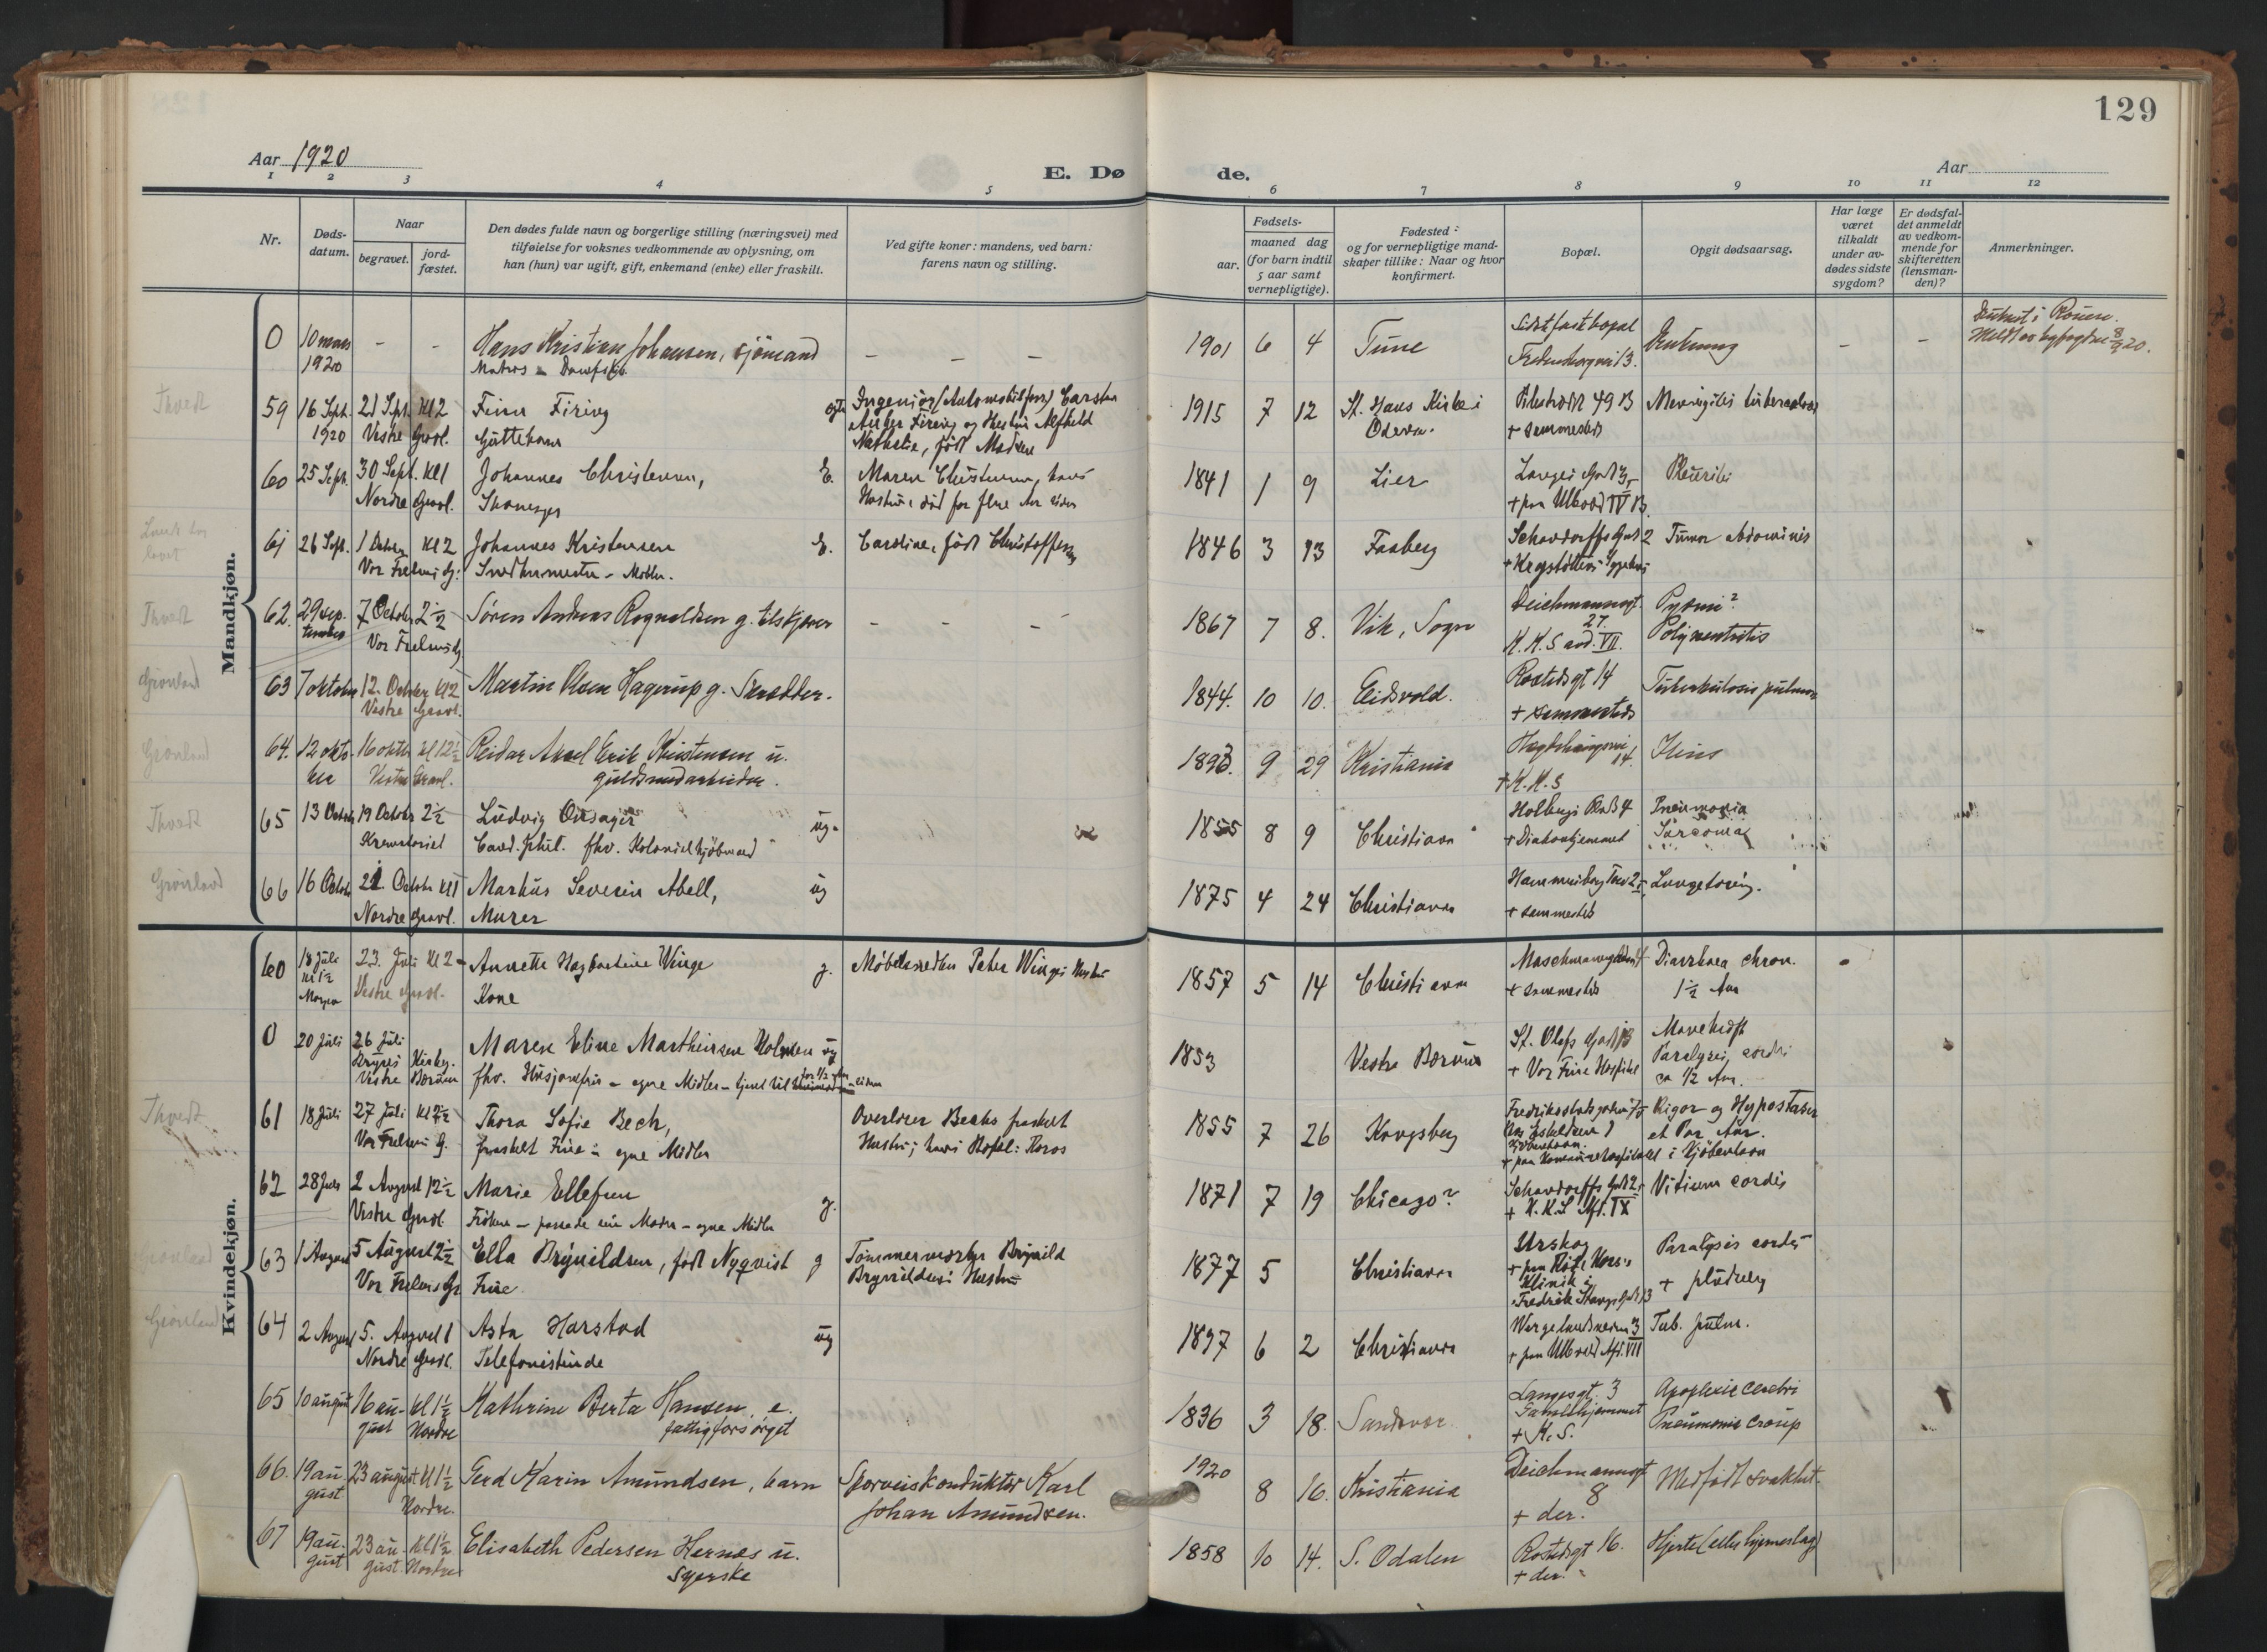 129
Aar 1920
E. Dø
de.
Aar
1 2 3 4 5 6 7 8 9 10 11 12
Nr.
Døds-
datum.
Naar
begravet.
jord-
fæstet.
Den dødes fulde navn og borgerlige stilling (næringsvei) med
tilføielse for voksnes vedkommende av oplysning, om
han (hun) var ugift, gift, enkemand (enke) eller fraskilt.
Ved gifte koner: mandens, ved barn:
farens navn og stilling.
Fødsels-
aar.
maaned dag
(for barn indtil
5 aar samt
vernepligtige).
Fødested:
og for vernepligtige mand-
skaper tillike: Naar og hvor
konfirmert.
Bopæl.
Opgit dødsaarsag.
Har læge
været
tilkaldt
under av-
dødes sidste
sygdom?
Er dødsfal-
det anmeldt
av vedkom-
mende for
skifteretten
(lensman-
den)?
Anmerkninger.
Mandkjøn.
0 10 mars - - Hans Kristian Johansen, sjömand - - - 1901 6 4 Tune Sidst fast bopæl Drukning - - Druknet i Rouen.
1920 Matros
59 16 Sept. 21 Sept. Kl 2 Finn Firing Ingeniør (Automobilforr) Carsten 1915 7 12 St. Hans Kirke i Pilestrædet 49 B Meningitis tuberculosa
1920 Vestre Gravl. Guttebarn Firing og Hustru Alfhild Odense. + sammesteds
Nathalie, født Madsen
60 25 Sept. 30 Sept. Kl 1 Johannes Christensen, E. Maren Christensen, hans 1841 1 9 Lier Langes Gad 3, Pleuritis
Nordre Gravl. Skomager Hustru død for flere Aar siden + paa Ullevål IV B.
61 26 Sept. 1 October Kl 2 Johannes Kristensen E. Caroline, født Christoffersen 1846 3 13 Faaberg Schandorffs Gad 2 Tumor abdominis
Vor Frelsers G. Snedkermester - Møbler. + Krogstøttens Sygehus
62. 29 sep- 7 October 2½ Søren Andreas Rognaldsen g. - - - 1867 7 8. Vik, Sogn Deichmannsgt. Pyæmi?
tember Vor Frelsers G. 27.
K. K. S avd. VII.
63 7 oktober 12. October Kl 2 Martin Olsen Hagerup g. Skrædder. 1844. 10 10. Eidsvold. Rostedsgt 14 Tuberkulosis pulmon
Vestre Gravl. + sammesteds
64. 12 okto- 16 oktbr kl 12½ Reidar Axel Erik Kristensen u. 1893. 9 29 Kristiania Hegdehaugsvei 14. Ileus
ber Vestre Gravl. guldsmedarbeider. + K. K. S
65 13 October 19 October 2½ Ludvig Onsager ug. 1855 8 9 Christiania Holbergs Plads 4 Pneumonia
Krematoriet Cand. phil. fhv. Kolonialkjøbmand + Diakonhjemmet Sarcoma
66 16 October 21. October Kl 1 Markus Severin Abell, ug 1875 4 24 Christiania Hammersborg Torv 2, Lungetæring.
Nordre Gravl. Murer + sammesteds
Kvindekjøn.
60 18 Juli 23. Juli Kl 2 Annette Hagbartine Winge g. Møbelsnedker Peter Winges Hustru 1857 5 14 Christiania + sammesteds Diarrhoea chron.
Vestre Gravl. Kone 1½ Aar
0 20 Juli 26 Juli Maren Eline Martheinsen Holmen ug 1853 Vestre Bærum St. Olafs Gad Mavekræft
Vestre Bærum fhv. Husjomfru - egne Midler + Vor Frue Hospital Paralysis cordis
ca 1/2 Aar.
61 18 Juli 27 Juli Kl 2½ Thora Sofie Bech, Overlærer Bechs fraskilt 1855 7 26 Kongsberg Rigor og Hypostaser
Vor Frelsers G. fraskilt Frue - egne Midler Hustru; hans Bopæl: Röros et Par Aar.
København.
62 28 Juli 2 August 12½ Marie Ellefsen g. 1871 7 19 Chicago? Schandorffs Gad 2, Vitium cordis
Vestre Gravl. Frøken - passede sin Moder - egne Midler + K. K. S Afd. IX
63 1 August 5 August 2½ Ella Brynildsen, født Nyqvist g Tømmermester Brynild 1877 5 Christiania Urskog Paralysis cordis
Vor Frelsers Gr Frue Brynildsens Hustru + paa Røde Kors's + pludselig
Klinik i
Fredrik Stangs Gad 13
64 2 August 5. August 1 Asta Harstad ug 1897 6 2 Christiania Wergelandsveien 3 Tub. pulm.
Nordre Gravl. Telefonistinde + paa Ullevål Afd. VII
65 10 august 16 au- kl 1½ Kathrine Berta Hansen, e. 1836 3 18. Sandsvær Langesgt. 3 Apoplexie cerebri
gust Nordre fattigforsørget Gamlehjemmet Pneumonie croup
+ K. S.
66. 19 au- 23 august kl 1½ Gerd Karin Amundsen, barn Sporveiskonduktør Karl 1920 8 16. Kristiania Deichmannsgt Medfødt svakhet.
gust Nordre. Johan Amundsen. 8
+ der.
67 19 au- 23 au- Kl 1½ Elisabeth Pedersen Hernæs u. 1858 10 14. S. Odalen Rostedsgt 16. Hjerte (eller hjerneslag)
gust gust Nordre Syerske + der.
Thvedt
Thvedt
Grønland
Grønland
Thvedt
Grønland
Thvedt
Grønland
Grønland